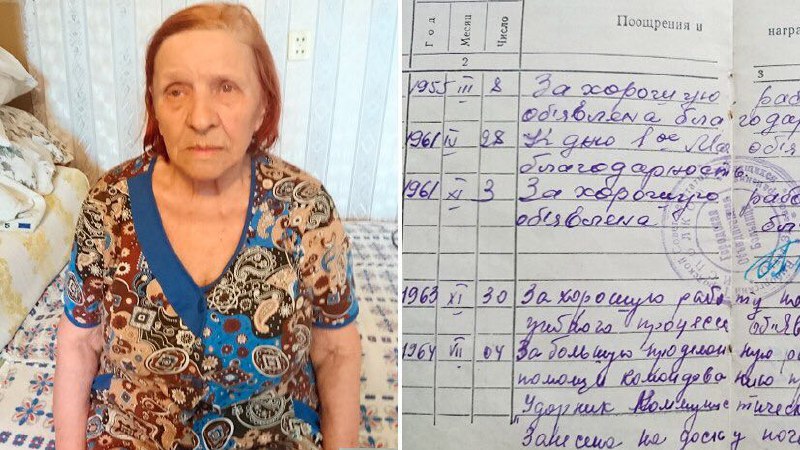 Год Месяц Число Поощрения и награ
2 3
1955 III 8 За хорошую рабо
объявлена благодар
1961 IV 28 К дню 1 ое Мая объя
благодарность
1961 XI 3 За хорошую рабо
объявлена бла
1963 XI 30 За хорошую работу по
учебного процесса объяв
1964 VII 04 За большую проделанную ра
помощи командованию
Ударник Коммунистическ
Занесена на доску поче